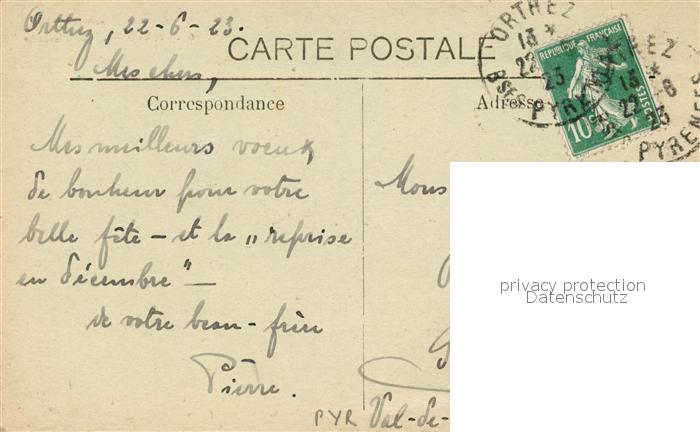 Orthez, 22-6-23.
CARTE POSTALE
Mes chers,
Correspondance
Adresse
Mes meilleurs voeux
de bonheur pour votre
belle fête – et la „reprise
en décembre" –
de votre beau-frère
Pierre.
Mons
PYR Val-de-
ORTHEZ
13 *
22
23
BSES PYRENEES
ORTHEZ
13 *
22 -6
23
PYRENEES
REPUBLIQUE FRANÇAISE
POSTES
10c
privacy protection
Datenschutz